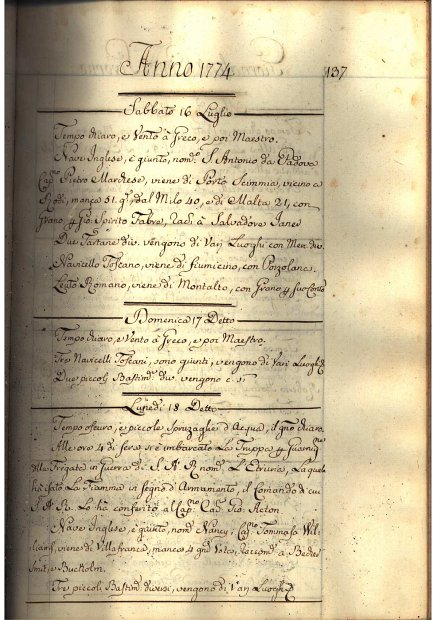 Anno 1774
137
Sabbato 16 Luglio
Tempo chiaro, e Vento à Greco, e poi Maestro.
Nave Inglese, è giunto, nom.º S. Antonio da Padova
Cap.º Pietro Mardiese, viene di Porto Scimmia, vicino a
Rodi, manca 51. g.ⁱ, dal Milo 40, e di Malta 21, con
Grano p Gio: Spirito Fabre, Racd.ⁱ à Salvadore Janer
Due Tartane div.ᵉ vengono di Varj Luoghi con Merc. div.
Navicello Toscano, viene di fiumicino, con Pozolana.
Leuto Romano, viene di Montalto, con Grano p suo Conto
Domenica 17 Detto
Tempo chiaro, e Vento à Greco, e poi Maestro.
Tre Navicelli Toscani, sono giunti, vengono di Vari Luoghi
Due piccoli Bastim.ᵗⁱ div. vengono c. s.
Lunedi 18 Detto
Tempo oscuro, e piccole Spruzaglie d'Acqua, il gno chiaro.
Alle ore 4 di sera si è imbarcato La Truppa p Guarnig.ⁿᵉ
della Fregata in Guerra di S. A. R. nom.ª L'Etruria, La quale
ha alzato La Fiamma in segno d'Armamento, il Comando di cui
S. A. R. Lo ha conferito al Cap.º Cav. Gio. Acton.
Nave Inglese, è giunto, nom.º Nancy, Cap.º Tommaso Wil-
liams, viene di Villafranca, manca 4 gni Voto, Raccomd.º a
Smit, e Bucholm.
Tre piccoli Bastim.ᵗⁱ diversi, vengono di Varj Luoghi